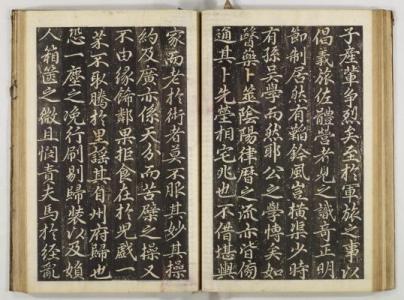 子產輩爭烈矣至於軍旅之事以
倡義旅佐體營者兄之識奇正明
節制居然有韜鈐風豈橫渠少時
有孫吳學而然耶公之學博矣如
醫藥卜筮陰陽律曆之流亦皆傍
通其卜先塋相宅兆也不借堪輿
家而老於術者莫不服其妙其操
約及廣亦係天分而苦蘗之操又
不由緣飾鄰果拒食在於兒戲一
茶不取騰於里謠其自州府歸也
恐一塵之浼行刷剔歸裝以及媍
人箱篋之微且憫責夫馬於經亂